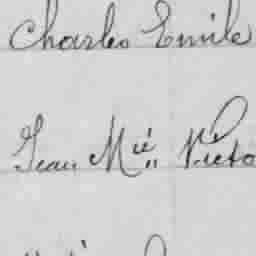 Charles Emile
Jean Mié Victo